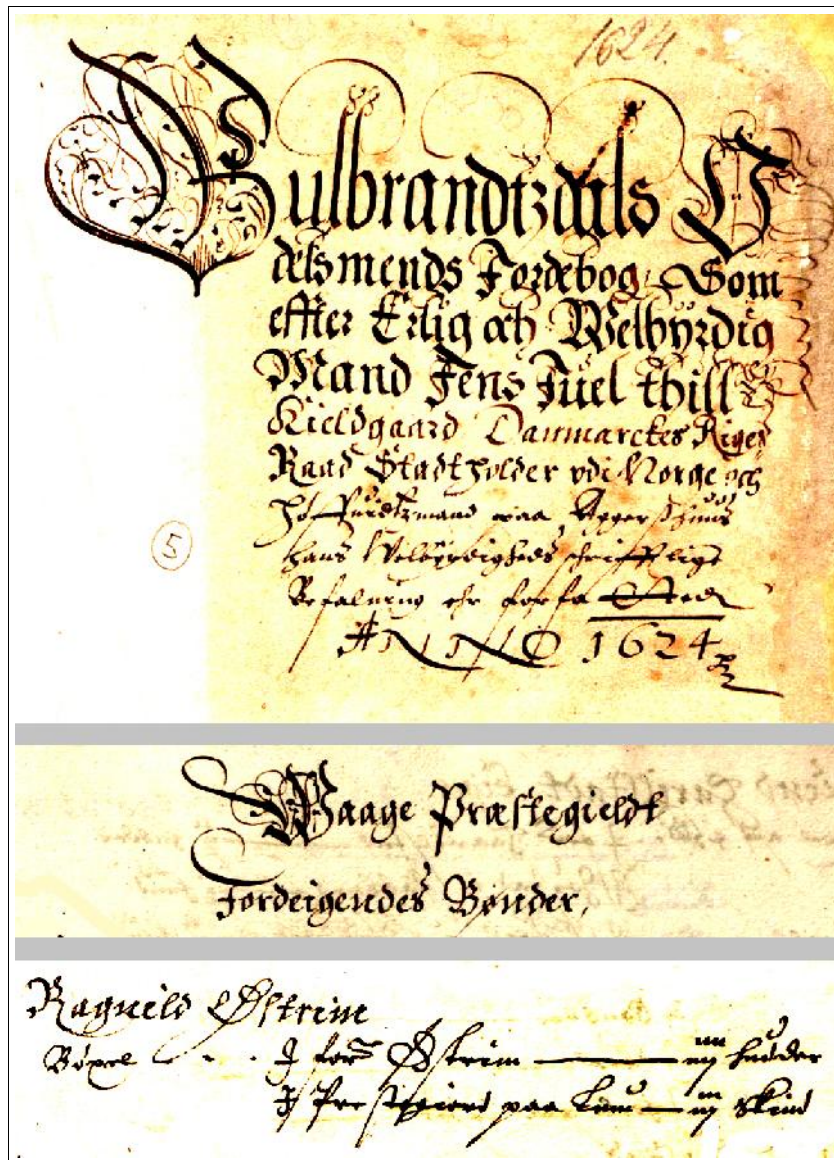 1624.
Gulbrandtzdals O
delsmends Jordebog Som
effter Erlig och Welbÿrdig
Mand Jens Juel thill
Kieldgaard Danmarckes Riges
Raad Stadtholder vdi Norge och
Höffuedtzmand paa Aggerszhuus
hans Welbÿrdigheds schrifftlige
Befalning ehr forfa
ANNO 1624
5
Waage Præstegieldt
Jordeigendes Bønder,
Ragnild Østrim
Bøxel J for Østrim huder
J paa Lom skind